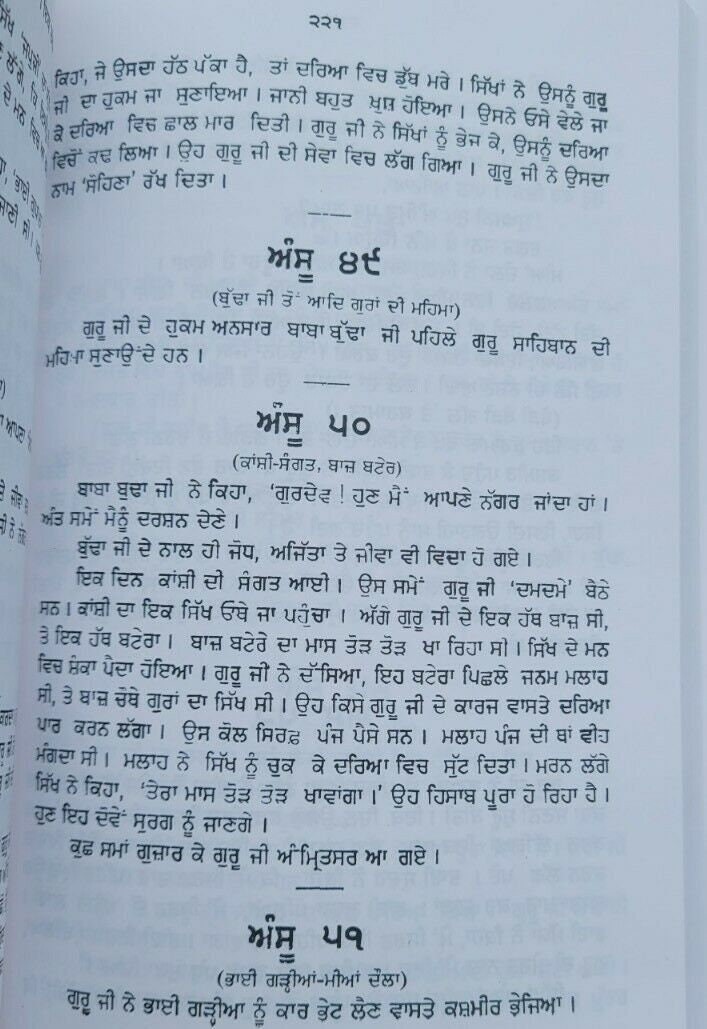 ੨੨੧
ਕਿਹਾ, ਜੇ ਉਸਦਾ ਹੱਠ ਪੱਕਾ ਹੈ, ਤਾਂ ਦਰਿਆ ਵਿਚ ਡੁੱਬ ਮਰੇ। ਸਿੱਖਾਂ ਨੇ ਉਸਨੂੰ ਗੁਰੂ
ਜੀ ਦਾ ਹੁਕਮ ਜਾ ਸੁਣਾਇਆ। ਜਾਨੀ ਬਹੁਤ ਖੁਸ਼ ਹੋਇਆ। ਉਸਨੇ ਓਸੇ ਵੇਲੇ ਜਾ
ਕੇ ਦਰਿਆ ਵਿਚ ਛਾਲ ਮਾਰ ਦਿਤੀ। ਗੁਰੂ ਜੀ ਨੇ ਸਿੱਖਾਂ ਨੂੰ ਭੇਜ ਕੇ, ਉਸਨੂੰ ਦਰਿਆ
ਵਿਚੋਂ ਕਢ ਲਿਆ। ਉਹ ਗੁਰੂ ਜੀ ਦੀ ਸੇਵਾ ਵਿਚ ਲੱਗ ਗਿਆ। ਗੁਰੂ ਜੀ ਨੇ ਉਸਦਾ
ਨਾਮ 'ਸੋਹਿਣਾ' ਰੱਖ ਦਿਤਾ।
ਅੰਸੂ ੪੯
(ਬੁੱਢਾ ਜੀ ਤੋਂ ਆਦਿ ਗੁਰਾਂ ਦੀ ਮਹਿਮਾ)
ਗੁਰੂ ਜੀ ਦੇ ਹੁਕਮ ਅਨਸਾਰ ਬਾਬਾ ਬੁੱਢਾ ਜੀ ਪਹਿਲੇ ਗੁਰੂ ਸਾਹਿਬਾਨ ਦੀ
ਮਹਿਮਾ ਸੁਣਾਉਂਦੇ ਹਨ।
ਅੰਸੂ ੫੦
(ਕਾਂਸ਼ੀ-ਸੰਗਤ, ਬਾਜ਼ ਬਟੇਰ)
ਬਾਬਾ ਬੁਢਾ ਜੀ ਨੇ ਕਿਹਾ, 'ਗੁਰਦੇਵ! ਹੁਣ ਮੈਂ ਆਪਣੇ ਨੱਗਰ ਜਾਂਦਾ ਹਾਂ।
ਅੰਤ ਸਮੇਂ ਮੈਨੂੰ ਦਰਸ਼ਨ ਦੇਣੇ।
ਬੁੱਢਾ ਜੀ ਦੇ ਨਾਲ ਹੀ ਜੋਧ, ਅਜਿੱਤਾ ਤੇ ਜੀਵਾ ਵੀ ਵਿਦਾ ਹੋ ਗਏ।
ਇਕ ਦਿਨ ਕਾਂਸ਼ੀ ਦੀ ਸੰਗਤ ਆਈ। ਉਸ ਸਮੇਂ ਗੁਰੂ ਜੀ 'ਦਮਦਮੇ' ਬੈਠੇ
ਸਨ। ਕਾਂਸ਼ੀ ਦਾ ਇਕ ਸਿੱਖ ਓਥੇ ਜਾ ਪਹੁੰਚਾ। ਅੱਗੇ ਗੁਰੂ ਜੀ ਦੇ ਇਕ ਹੱਥ ਬਾਜ਼ ਸੀ,
ਤੇ ਇਕ ਹੱਥ ਬਟੇਰਾ। ਬਾਜ਼ ਬਟੇਰੇ ਦਾ ਮਾਸ ਤੋੜ ਤੋੜ ਖਾ ਰਿਹਾ ਸੀ। ਸਿੱਖ ਦੇ ਮਨ
ਵਿਚ ਸ਼ੰਕਾ ਪੈਦਾ ਹੋਇਆ। ਗੁਰੂ ਜੀ ਨੇ ਦੱਸਿਆ, ਇਹ ਬਟੇਰਾ ਪਿਛਲੇ ਜਨਮ ਮਲਾਹ
ਸੀ, ਤੇ ਬਾਜ਼ ਚੋਥੇ ਗੁਰਾਂ ਦਾ ਸਿੱਖ ਸੀ। ਉਹ ਕਿਸੇ ਗੁਰੂ ਜੀ ਦੇ ਕਾਰਜ ਵਾਸਤੇ ਦਰਿਆ
ਪਾਰ ਕਰਨ ਲੱਗਾ। ਉਸ ਕੋਲ ਸਿਰਫ਼ ਪੰਜ ਪੈਸੇ ਸਨ। ਮਲਾਹ ਪੰਜ ਦੀ ਥਾਂ ਵੀਹ
ਮੰਗਦਾ ਸੀ। ਮਲਾਹ ਨੇ ਸਿੱਖ ਨੂੰ ਚੁਕ ਕੇ ਦਰਿਆ ਵਿਚ ਸੁੱਟ ਦਿਤਾ। ਮਰਨ ਲੱਗੇ
ਸਿੱਖ ਨੇ ਕਿਹਾ, 'ਤੇਰਾ ਮਾਸ ਤੋੜ ਤੋੜ ਖਾਵਾਂਗਾ।' ਉਹ ਹਿਸਾਬ ਪੂਰਾ ਹੋ ਰਿਹਾ ਹੈ।
ਹੁਣ ਇਹ ਦੋਵੇਂ ਸੁਰਗ ਨੂੰ ਜਾਣਗੇ।
ਕੁਛ ਸਮਾਂ ਗੁਜ਼ਾਰ ਕੇ ਗੁਰੂ ਜੀ ਅੰਮ੍ਰਿਤਸਰ ਆ ਗਏ।
ਅੰਸੂ ੫੧
(ਭਾਈ ਗੜ੍ਹੀਆਂ-ਮੀਆਂ ਦੌਲਾ)
ਗੁਰੂ ਜੀ ਨੇ ਭਾਈ ਗੜ੍ਹੀਆ ਨੂੰ ਕਾਰ ਭੇਟ ਲੈਣ ਵਾਸਤੇ ਕਸ਼ਮੀਰ ਭੇਜਿਆ।